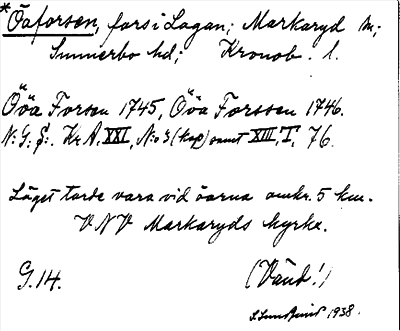 *Öaforsen, fors i Lagan; Markaryd sn;
Sunnerbo hd; Kronob. l.
Öÿa Forsen 1745, Öÿa Forssen 1746.
N: G: S:. Kr A, XXI, N:o 3 (kap) samt XIII, T, 76.
Läget torde vara vid öarna omkr. 5 km.
VNV Markaryds kyrka.
G. 14. (Vänd!)
1938.